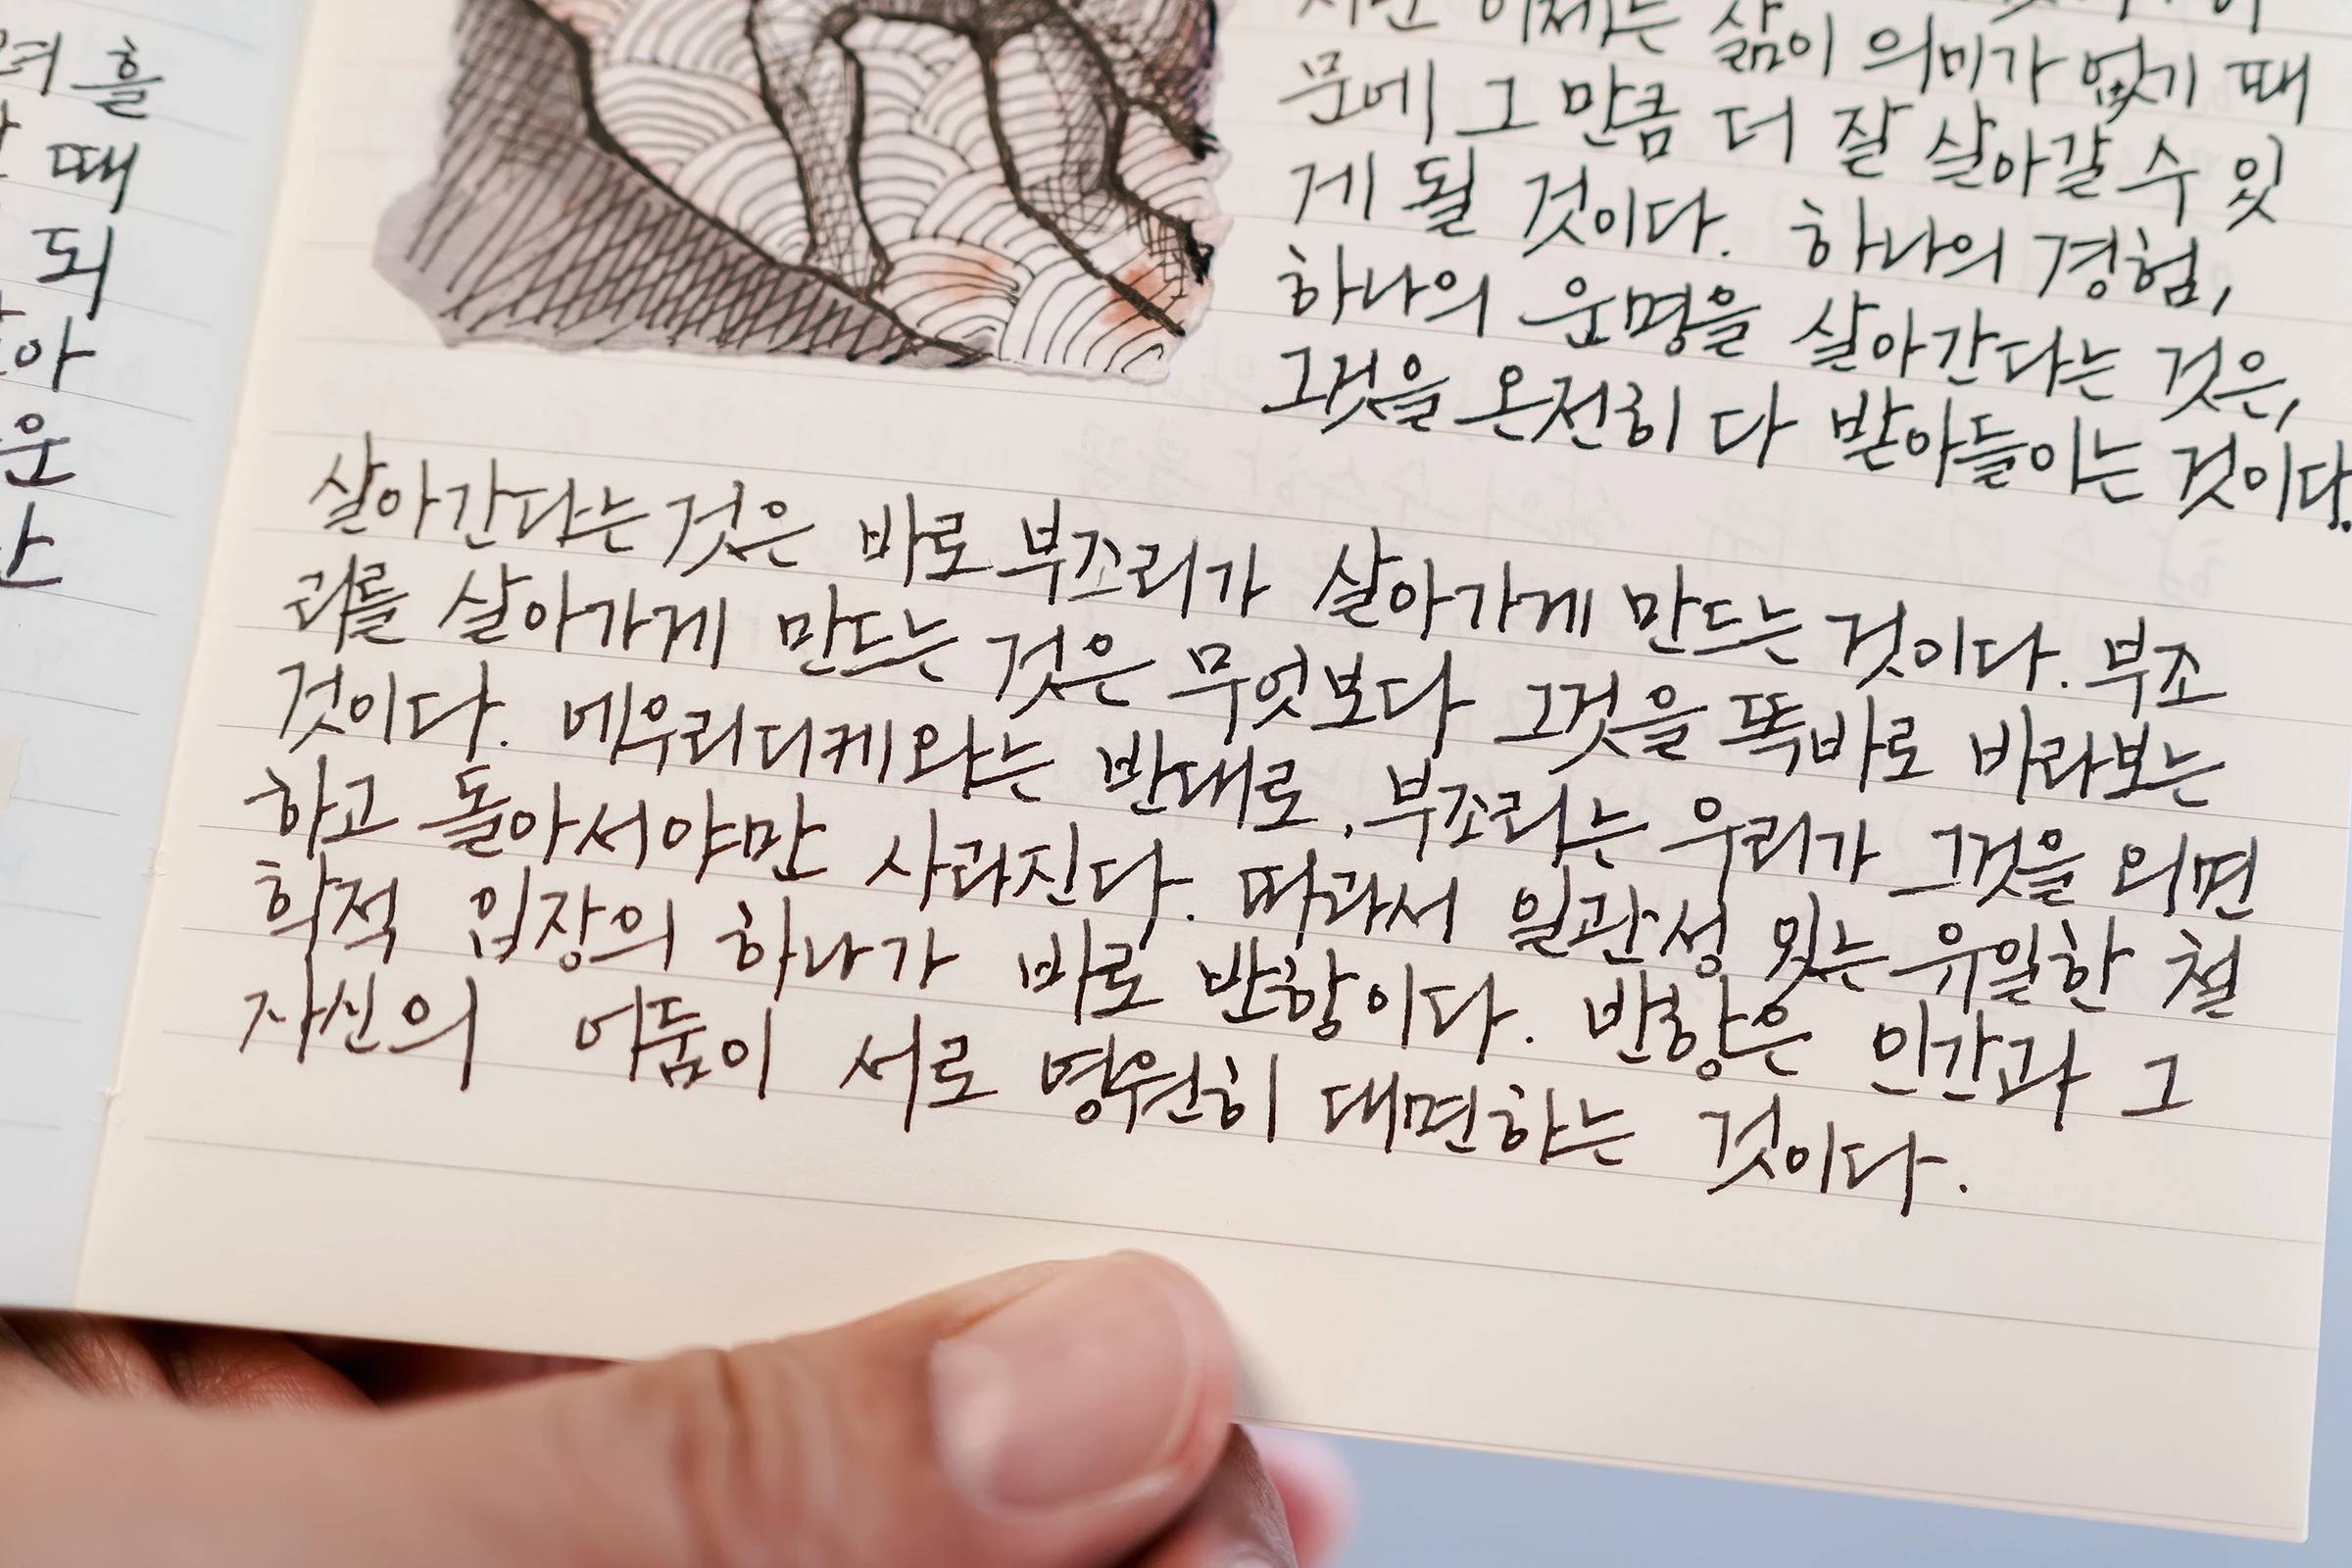 흘
때
되
아
운
이제는 삶이 의미가 없기 때
문에 그 만큼 더 잘 살아갈 수 있
게 될 것이다. 하나의 경험,
하나의 운명을 살아간다는 것은,
그것을 온전히 다 받아들이는 것이다.
살아간다는 것은 바로 부조리가 살아가게 만드는 것이다. 부조
리를 살아가게 만드는 것은 무엇보다 그것을 똑바로 바라보는
것이다. 에우리디케와는 반대로, 부조리는 우리가 그것을 외면
하고 돌아서야만 사라진다. 따라서 일관성 있는 유일한 철
학적 입장의 하나가 바로 반항이다. 반항은 인간과 그
자신의 어둠이 서로 영원히 대면하는 것이다.